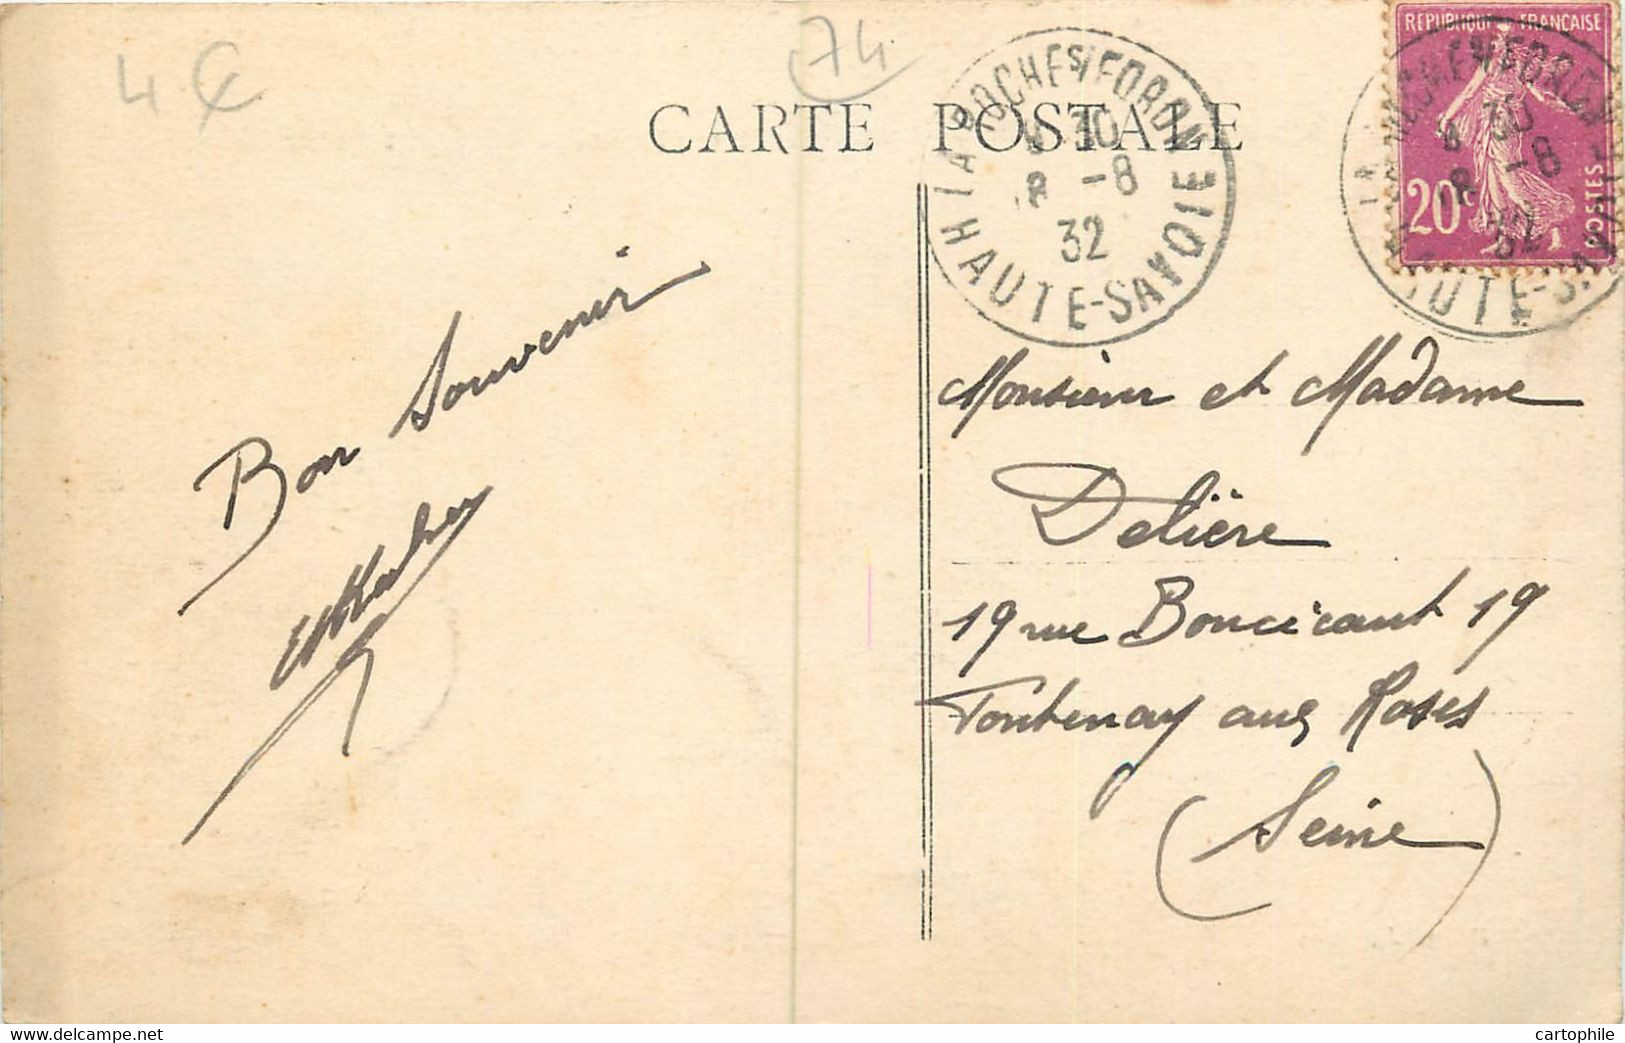 4€
74
CARTE POSTALE
LA ROCHE S/ FORON
30
-8
32
HAUTE-SAVOIE
REPUBLIQUE FRANÇAISE
20c
POSTES
Bon Souvenir
Monsieur et Madame
Delière
19 rue Boucicaut 19
Fontenay aux Roses
(Seine)
www.delcampe.net
cartophile